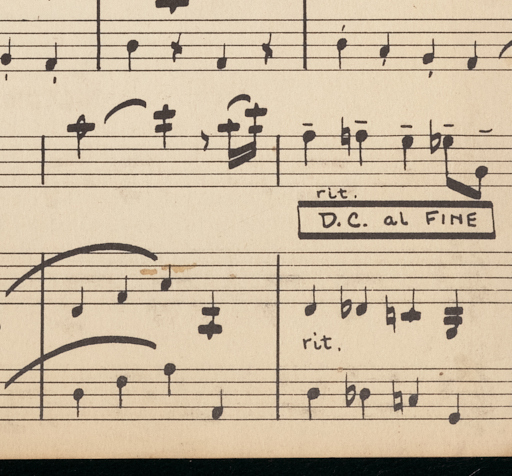 rit.
D.C. al FINE
rit.